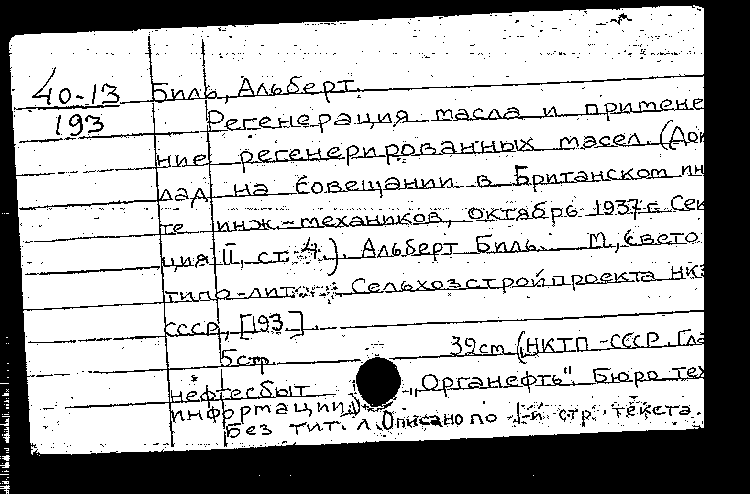 40-13 Биль, Альберт.
193 Регенерация масла и примене
ние регенерированных масел. (Док
лад на совещании в Британском ин
те инж.-механиков, октябрь 1937 г. Сек
ция II, ст. 4.). Альберт Биль. М., свето
типо-литогр. Сельхозстройпроекта НКЗ
СССР, [193 ].
5 стр. 39 см. (НКТП-СССР. Гла
нефтесбыт „Органефть". Бюро тех
информации)
Без тит. л. Описано по 1-й стр. текста.